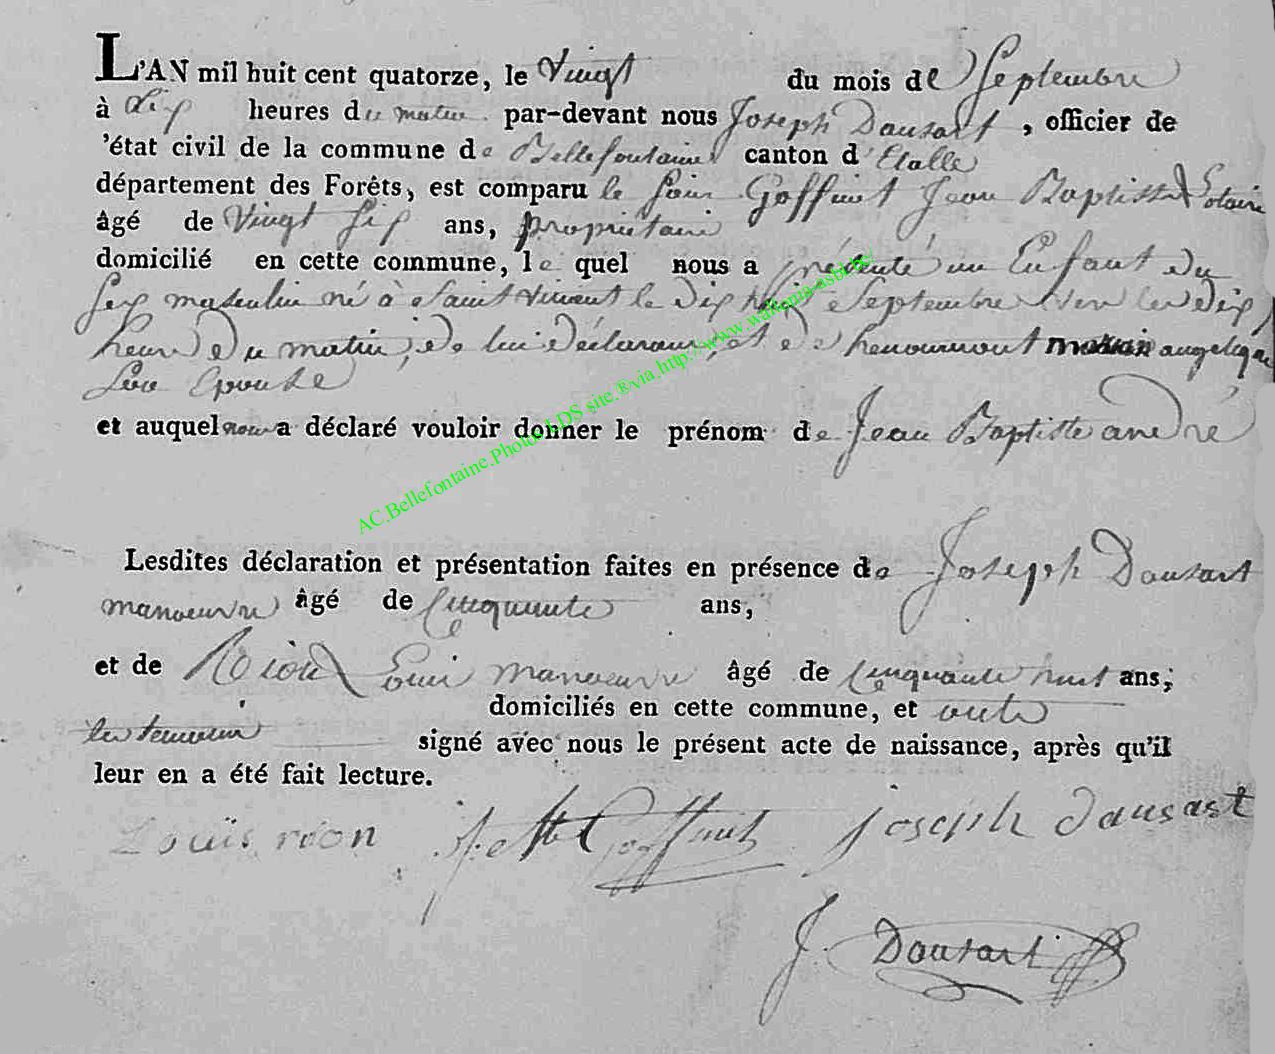 L'AN mil huit cent quatorze, le Vingt du mois de Septembre
à dix heures du matin par-devant nous Joseph Dausart, officier de
'état civil de la commune de Bellefontaine canton d'Etalle
département des Forêts, est comparu le Goffinet Jean Baptiste
âgé de Vingt six ans, propriétaire
domicilié en cette commune, le quel nous a présenté un Enfant du
sexe masculin né à Saint Vincent le dix Septembre vers les dix
heures du matin, de lui déclarant, et de henoumont angelique
son Epouse
et auquel nous a déclaré vouloir donner le prénom de Jean Baptiste andré
AC.Bellefontaine.Photos LDS site.®via.http://www.wallonia-asbl.be/
Lesdites déclaration et présentation faites en présence de Joseph Dausart
manoeuvre âgé de Cinquante ans,
et de Rion Louis manoeuvre âgé de Cinquante huit ans;
domiciliés en cette commune, et ont
les temoins signé avec nous le présent acte de naissance, après qu'il
leur en a été fait lecture.
Louis rion Goffinet joseph dausart
J. Dausart